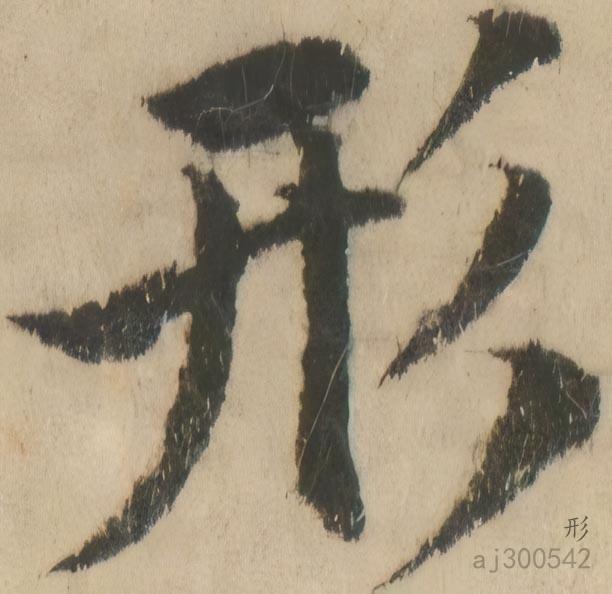 形
形
aj300542